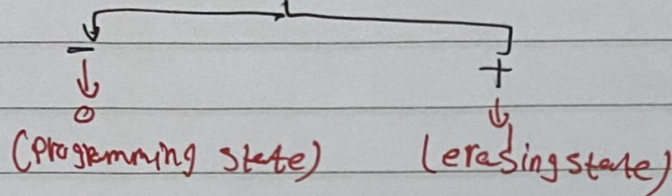 - +
0
(programming state) (erasing state)